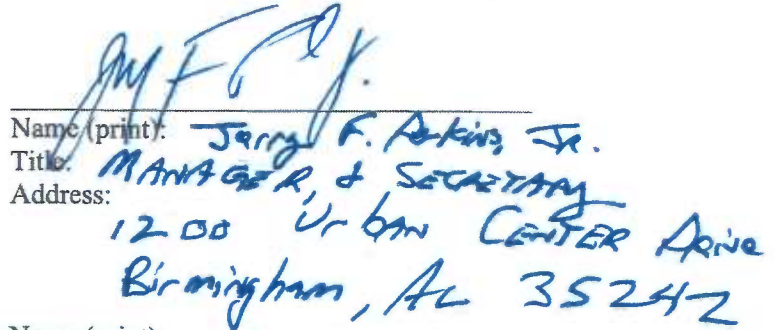 Name (print): Jerry F. Perkins, Jr.
Title: MANAGER, & SECRETARY
Address:
1200 Urban CENTER Drive
Birmingham, AL 35242
Name (print):